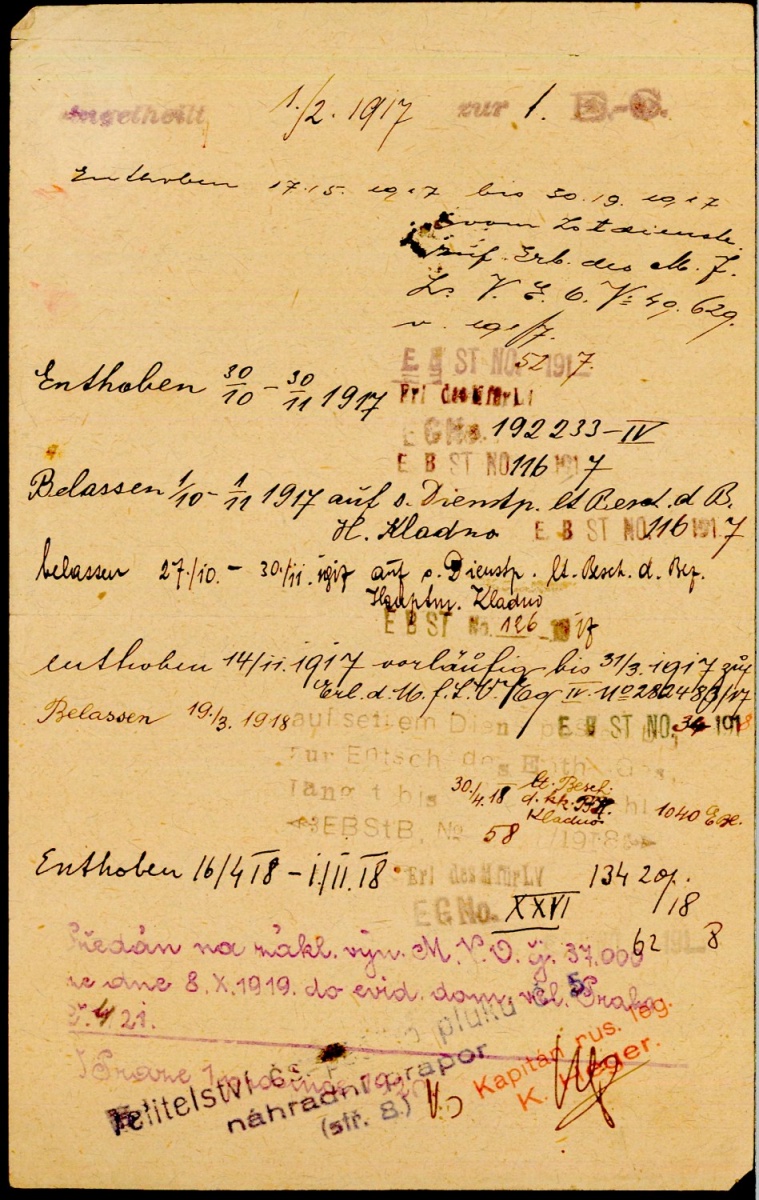 1./2. 1917 zur 1. E.-C.
Enthoben 17.5. 1917 bis 30.9. 1917
vom Lstdienste
Erb. des M. f.
L. V. E. G. No 49.629.
v. 1917.
E B ST NO. 52 1917.
Enthoben 30/10 – 30/11 1917
Erl des M für LV
EGNo. 192 233–IV
E B ST NO 116 1917
Belassen 1/10 – 1/11 1917 auf s. Dienstp. lt Besch. d B.
H. Kladno E B ST NO. 116 1917
belassen 27./10. – 30./11. 1917 auf s. Dienstp. lt. Besch. d. Bez.
Hauptm. Kladno
E B ST No. 126 1917
enthoben 14/11. 1917 vorläufig bis 31/3. 1917 zuf
Erl. d. M. f. L. V. Eg IV. No
Belassen 19./3. 1918 auf seinem Dienstposten bis
E B ST NO. 34 1918
zur Entsch. des Enth. Ges.
langt bis 30./4. 18 lt. Besch.
d. kk. BH.
Kladno 1040 Ex.
EBStB. No 58 /1918
Enthoben 16/4 18 – 1./II. 18.
Erl des M für LV 134 20p.
EGNo. XXVI /18
62 8
Předán na zákl. výn. M. N. O. čj. 37.000
ze dne 8. X. 1919. do evid. dom. vel. Praha
č. 4. 21.
V Praze 1920
Velitelství čs. pluku č. 5
náhradní prapor
(stř. 8.)
Kapitán rus. leg.
K. Heger.